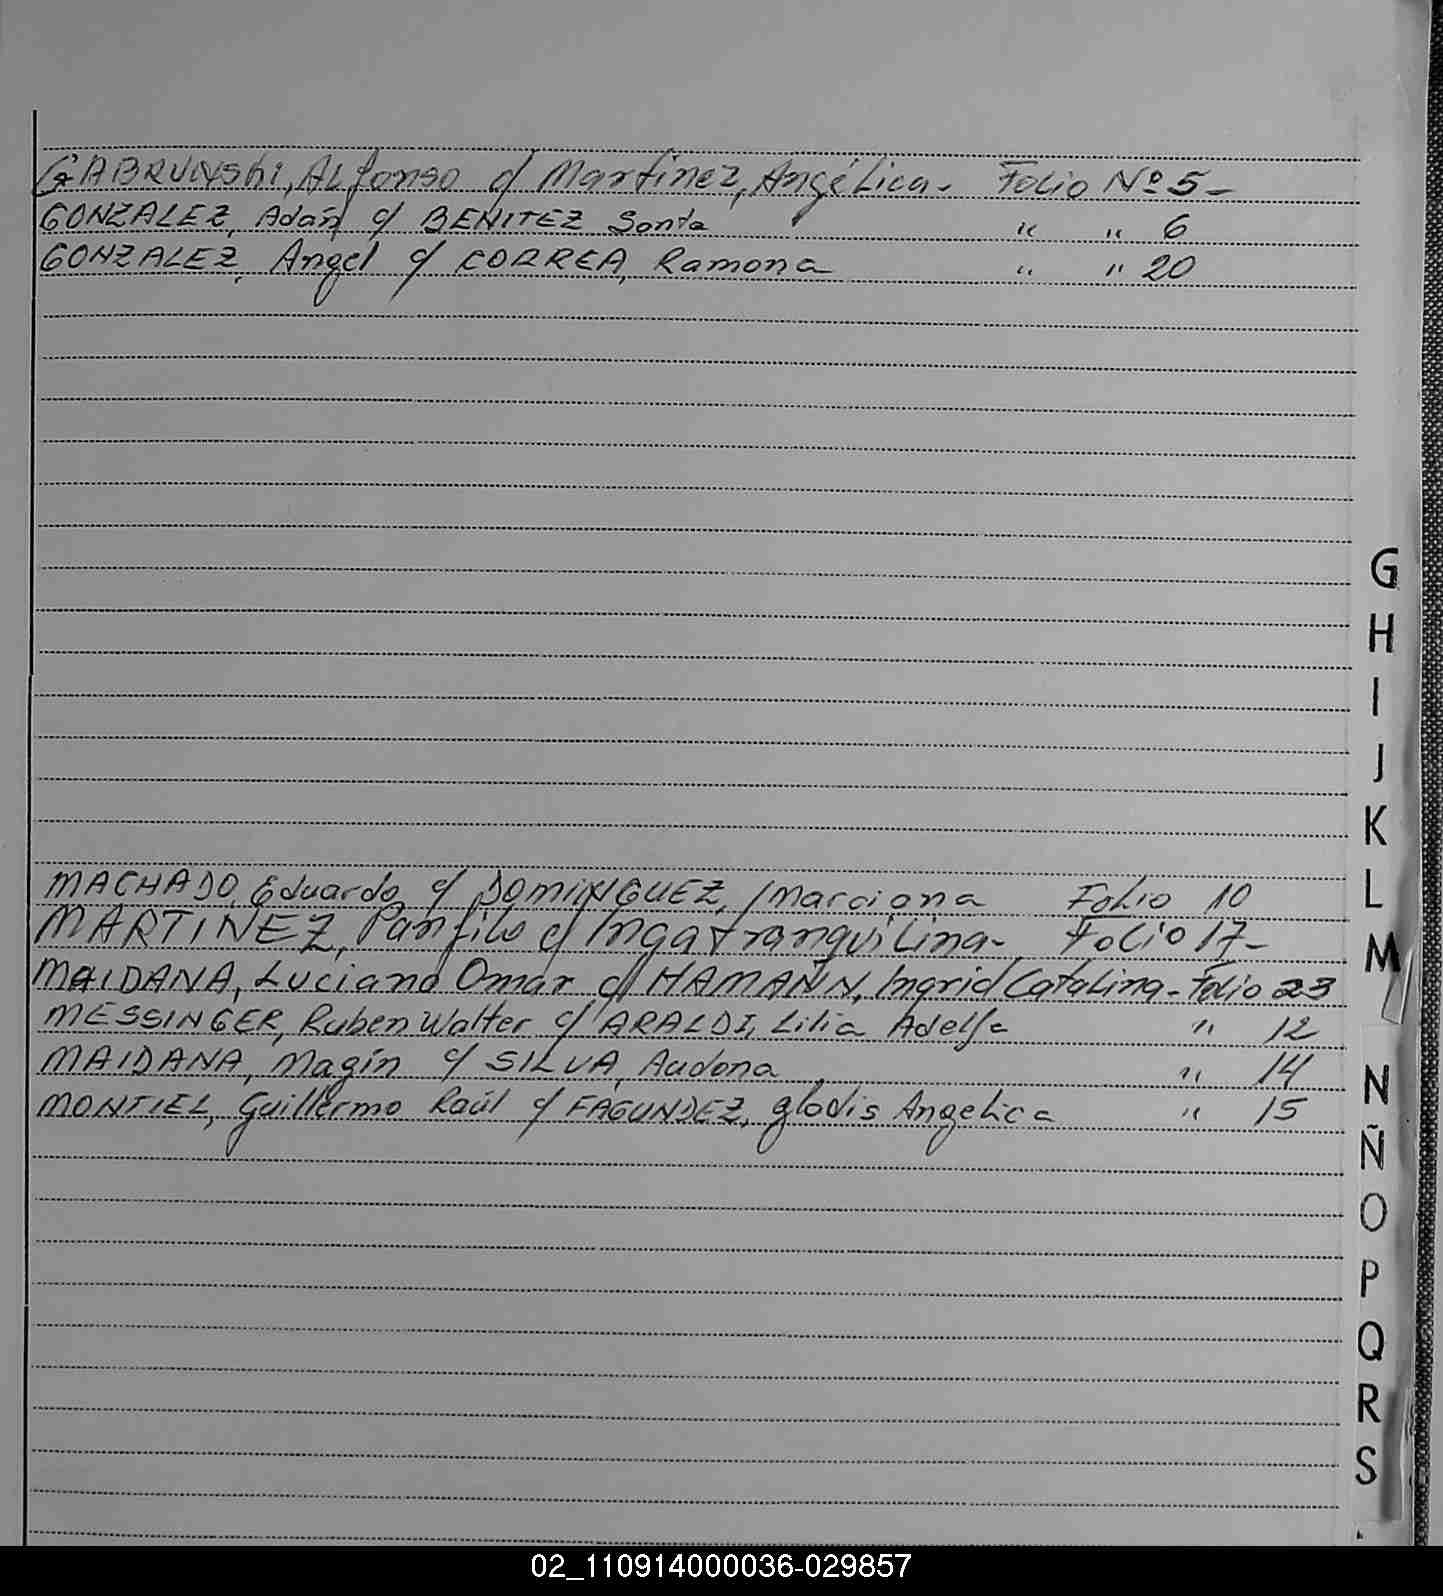 GABRUNSKi, ALfonso c/ Martinez, Angélica. Folio Nº 5_
GONZALEZ, Adán c/ BENITEZ Santa " " 6
GONZALEZ, Angel c/ CORREA, Ramona " " 20
G
H
I
J
K
L
M
N
Ñ
O
P
Q
R
S
MACHADO, Eduardo c/ DOMINGUEZ, Marciana Folio 10
MARTINEZ, Panfilo c/ Inga Tranquilina. Folio 17_
MAIDANA, Luciano Omar c/ HAMANN, Ingrid Catalina. Folio 23
MESSINGER, Ruben Walter c/ ARALDI, Lilia Adelfa " 12
MAIDANA, Magín c/ SILVA, Audona " 14
MONTIEL, Guillermo Raúl c/ FAGUNDEZ, Glodis Angelica " 15
02_110914000036-029857